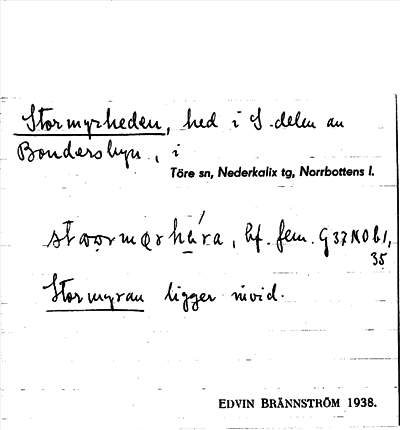 Stormyrheden, hed i S. delen av
Bondersbyn, i
Töre sn, Nederkalix tg, Norrbottens l.
bf. fem. G 37 N O b 1,
35
Stormyran ligger invid.
EDVIN BRÄNNSTRÖM 1938.